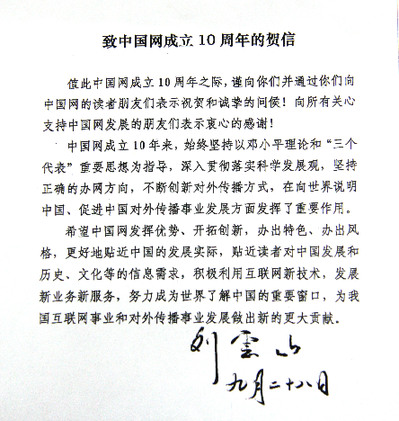 致中国网成立10周年的贺信
值此中国网成立10周年之际，谨向你们并通过你们向
中国网的读者朋友们表示祝贺和诚挚的问侯！向所有关心
支持中国网发展的朋友们表示衷心的感谢！
中国网成立10年来，始终坚持以邓小平理论和“三个
代表”重要思想为指导，深入贯彻落实科学发展观，坚持
正确的办网方向，不断创新对外传播方式，在向世界说明
中国、促进中国对外传播事业发展方面发挥了重要作用。
希望中国网发挥优势、开拓创新，办出特色、办出风
格，更好地贴近中国的发展实际，贴近读者对中国发展和
历史、文化等的信息需求，积极利用互联网新技术，发展
新业务新服务，努力成为世界了解中国的重要窗口，为我
国互联网事业和对外传播事业发展做出新的更大贡献。
刘云山
九月二十八日